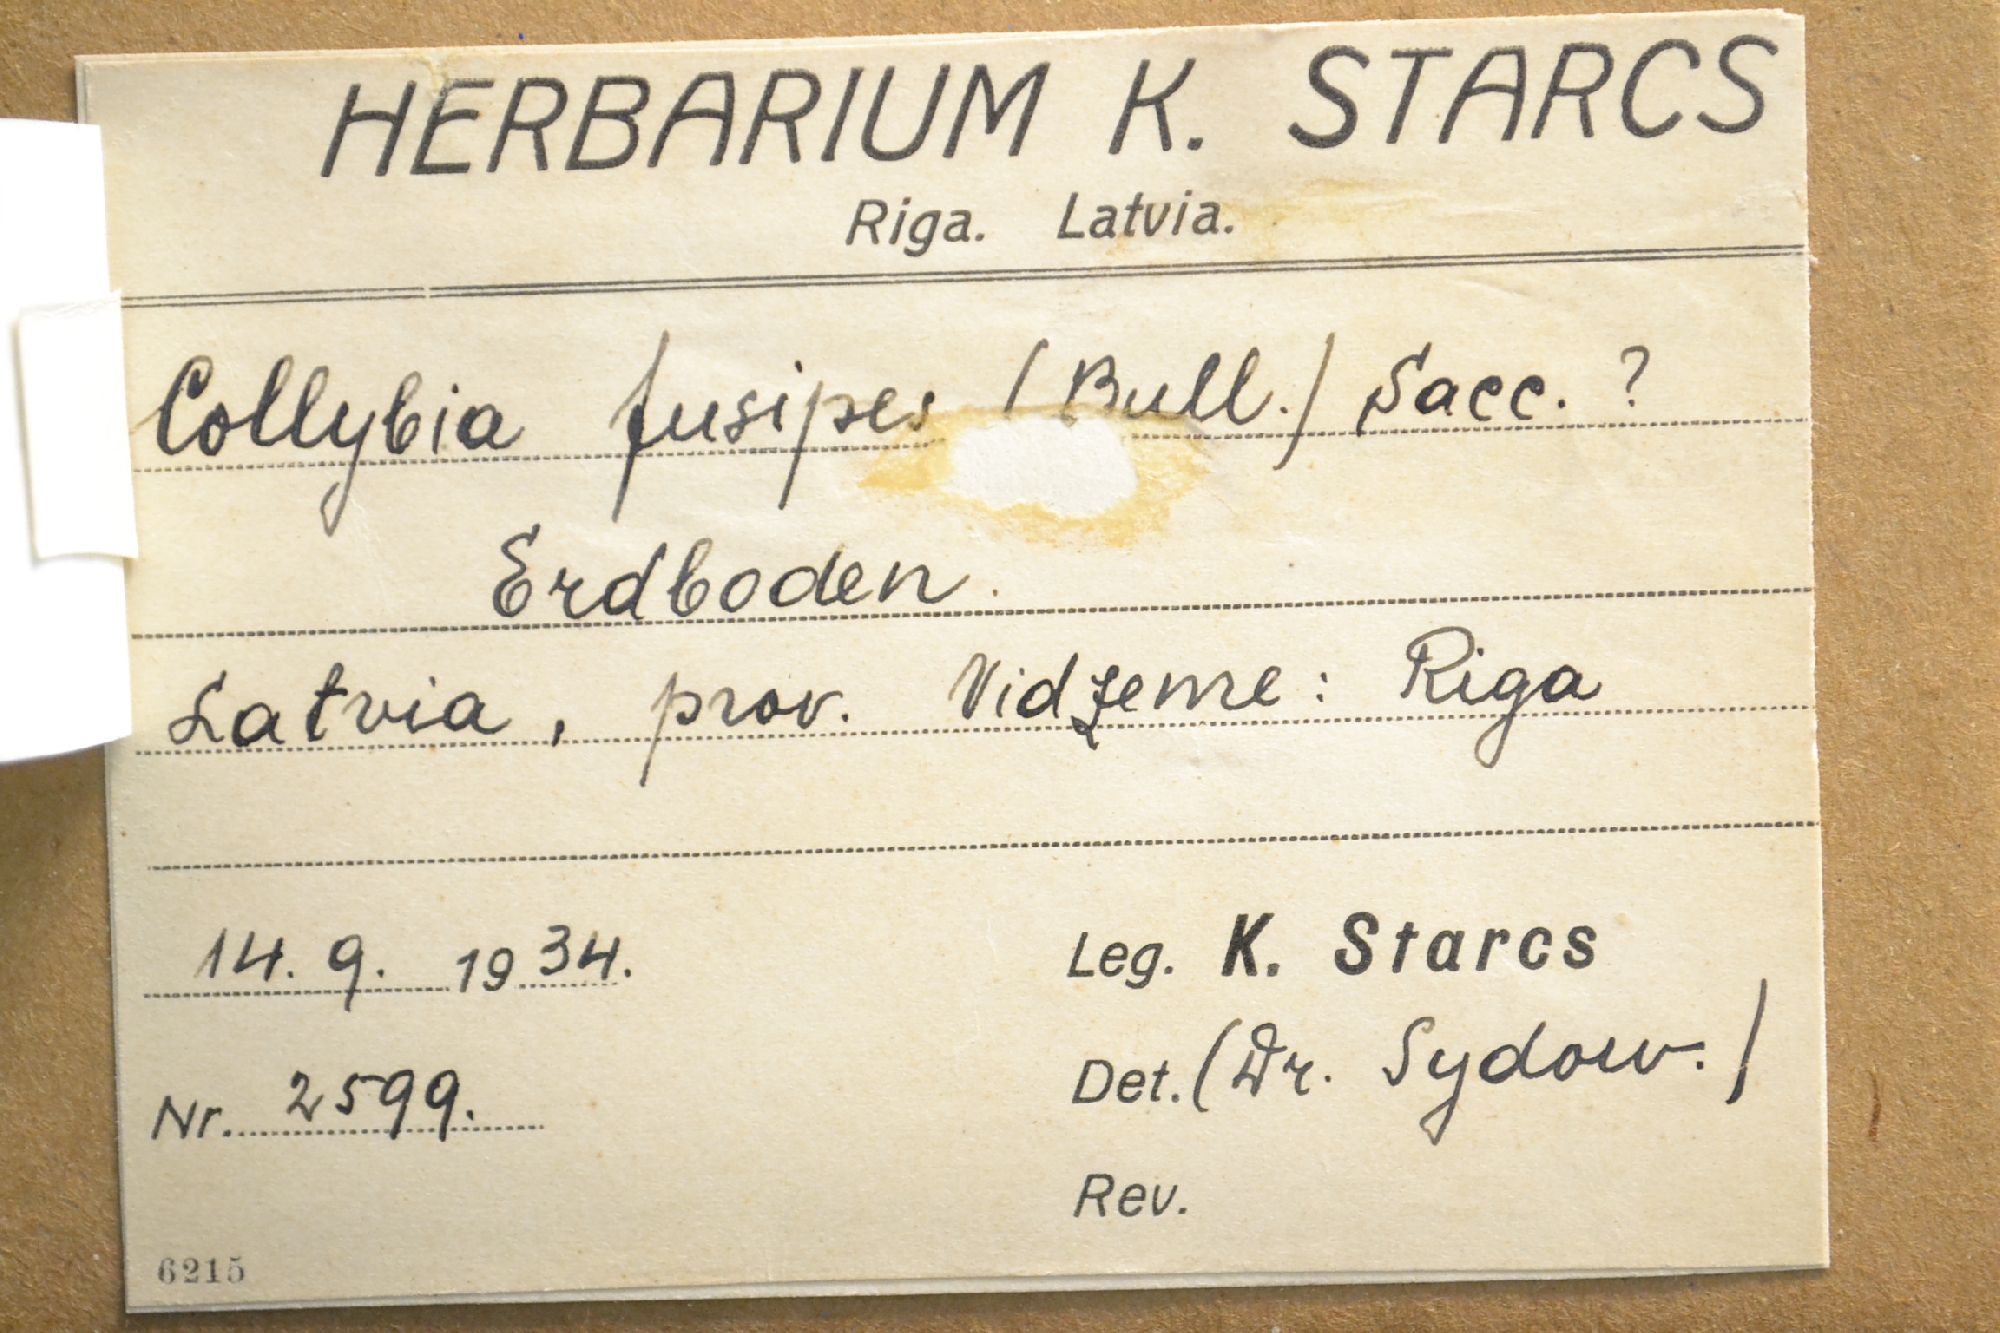 HERBARIUM K. STARCS
Riga. Latvia.
Collybia fusipes (Bull.) Sacc. ?
Erdboden.
Latvia, prov. Vidzeme: Riga
14. 9. 1934.
Leg. K. Starcs
Det. (Dr. Sydow.)
Nr. 2599.
Rev.
6215